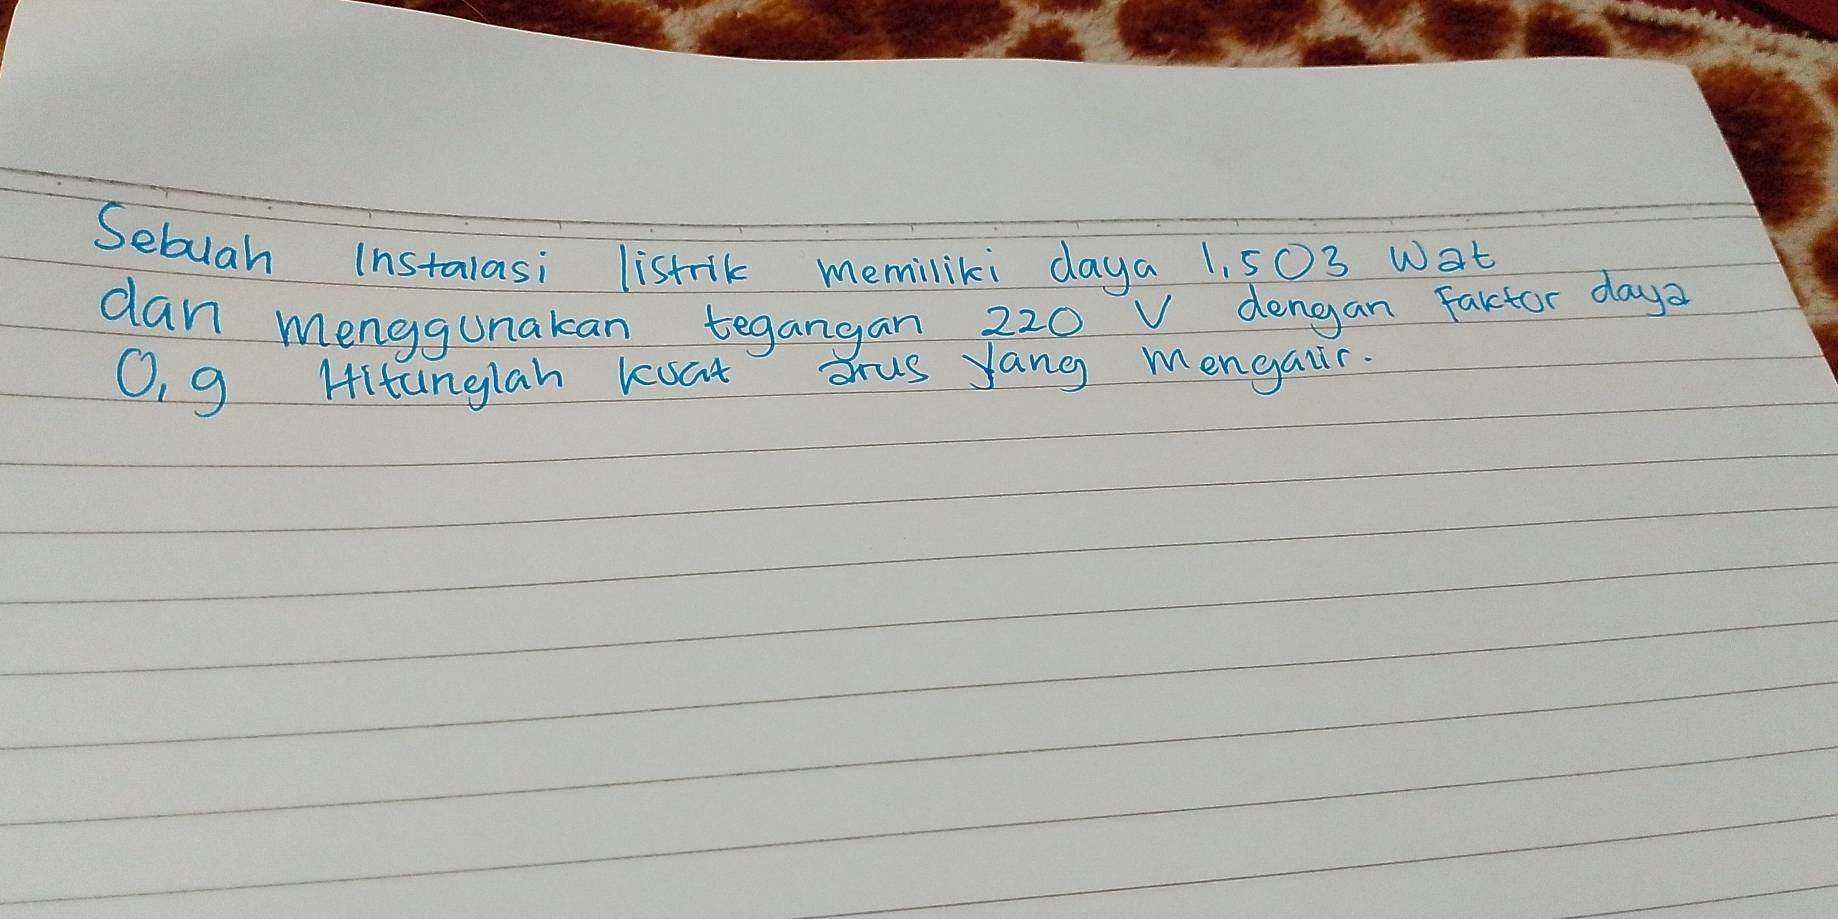 Sebuah Instalasi listrik memiliki daya 1,503 Wat
dan menggunakan tegangan 220 V dengan Faktor daya
0,9 Hitunglah kuat arus yang mengalir.